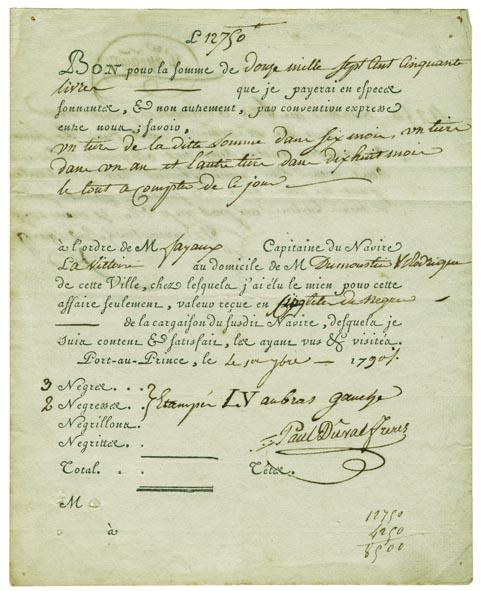 ₤ 12750⁺
BON pour la somme de douze mille sept cent cinquante
livres que je payerai en especes
sonnantes, & non autrement, par convention expresse
entre nous; savoir,
un tiers de la ditte somme dans six mois, un tiers
dans un an et l'autre tiers dans dix huit mois
le tout a compter de ce jour
à l'ordre de M Fayaux Capitaine du Navire
La au domicile de M Dumoustier & Rodrigue
de cette Ville, chez lesquels j'ai élu le mien, pour cette
affaire seulement, valeur reçue en têtes de negres
de la cargaison du susdit Navire, desquels je
suis content & satisfait, les ayant vus & visités.
Port-au-Prince, le 1790
3 Negres . . .
2 Negresses . . Etampés LV au bras gauche
Negrillons.
Negrittes. .
Paul Duval Freres
Total. . . Têtes.
M
à
12750
4250
8500